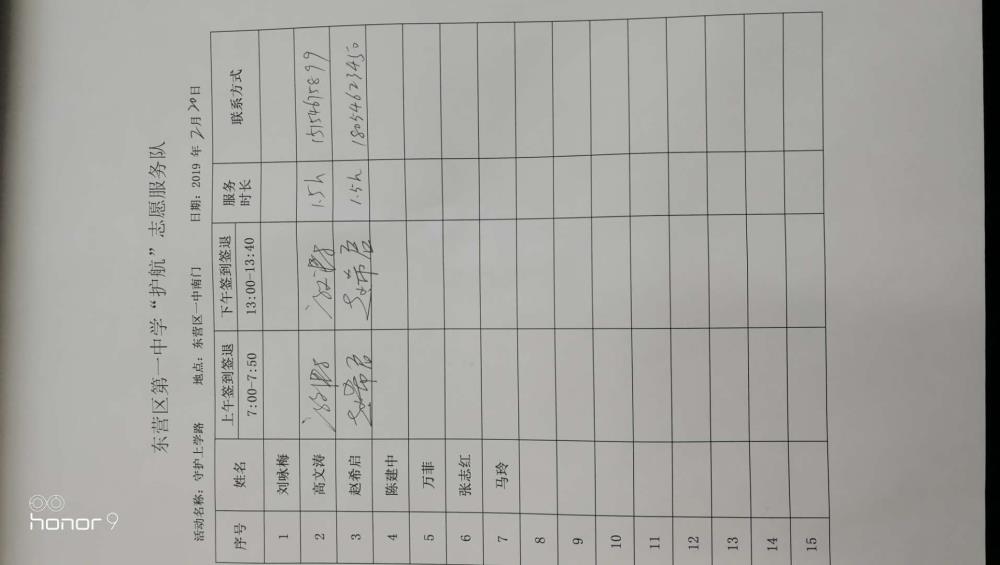 东营区第一中学“护航”志愿服务队
活动名称：守护上学路 地点：东营区一中南门 日期：2019 年 2月 20日
序号 姓名 上午签到签退 7:00-7:50 下午签到签退 13:00-13:40 服务时长 联系方式
1 刘咏梅
2 高文涛 1.5h 15154675899
3 赵希启 赵希启 赵希启 1.5h 18054623450
4 陈建中
5 万菲
6 张志红
7 马玲
8
9
10
11
12
13
14
15
honor 9